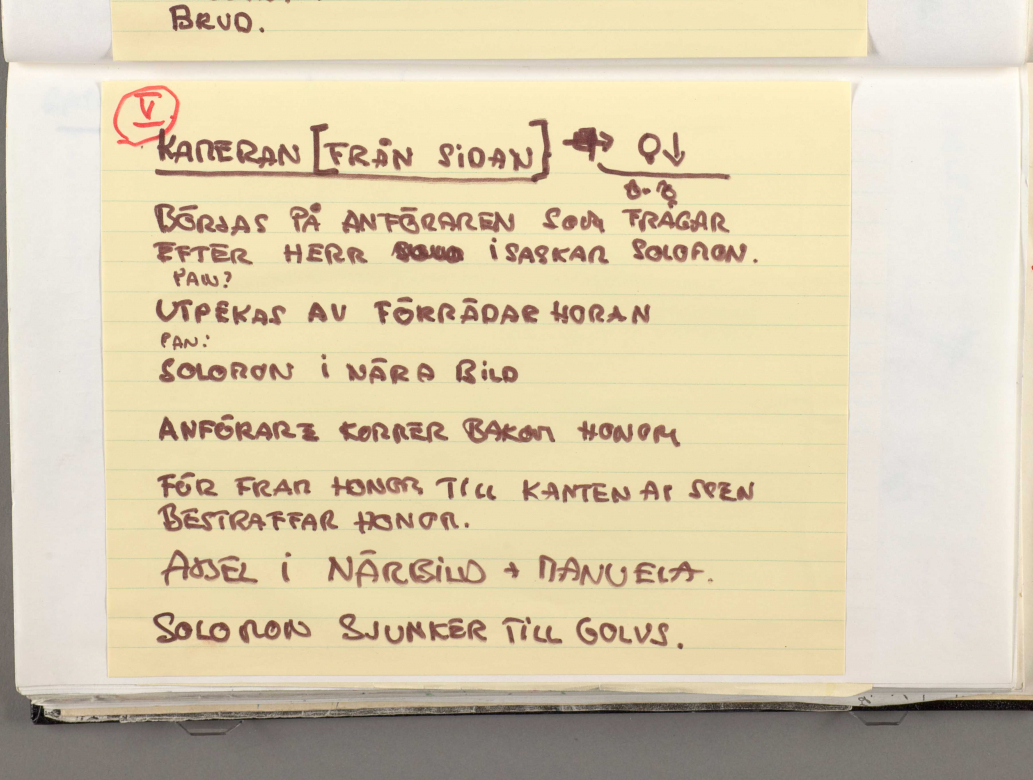 BRUD.
V
KAMERAN [FRÅN SIDAN]
BÖRJAS PÅ ANFÖRAREN SOM FRÅGAR
EFTER HERR ISASKAR SOLOMON.
PAN?
UTPEKAS AV FÖRRÄDAR HORAN
PAN:
SOLOMON I NÄRA BILD
ANFÖRARE KOMMER BAKOM HONOM
FÖR FRAM HONOM TILL KANTEN AF SCEN
BESTRAFFAR HONOM.
AXEL I NÄRBILD + MANUELA.
SOLOMON SJUNKER TILL GOLVS.